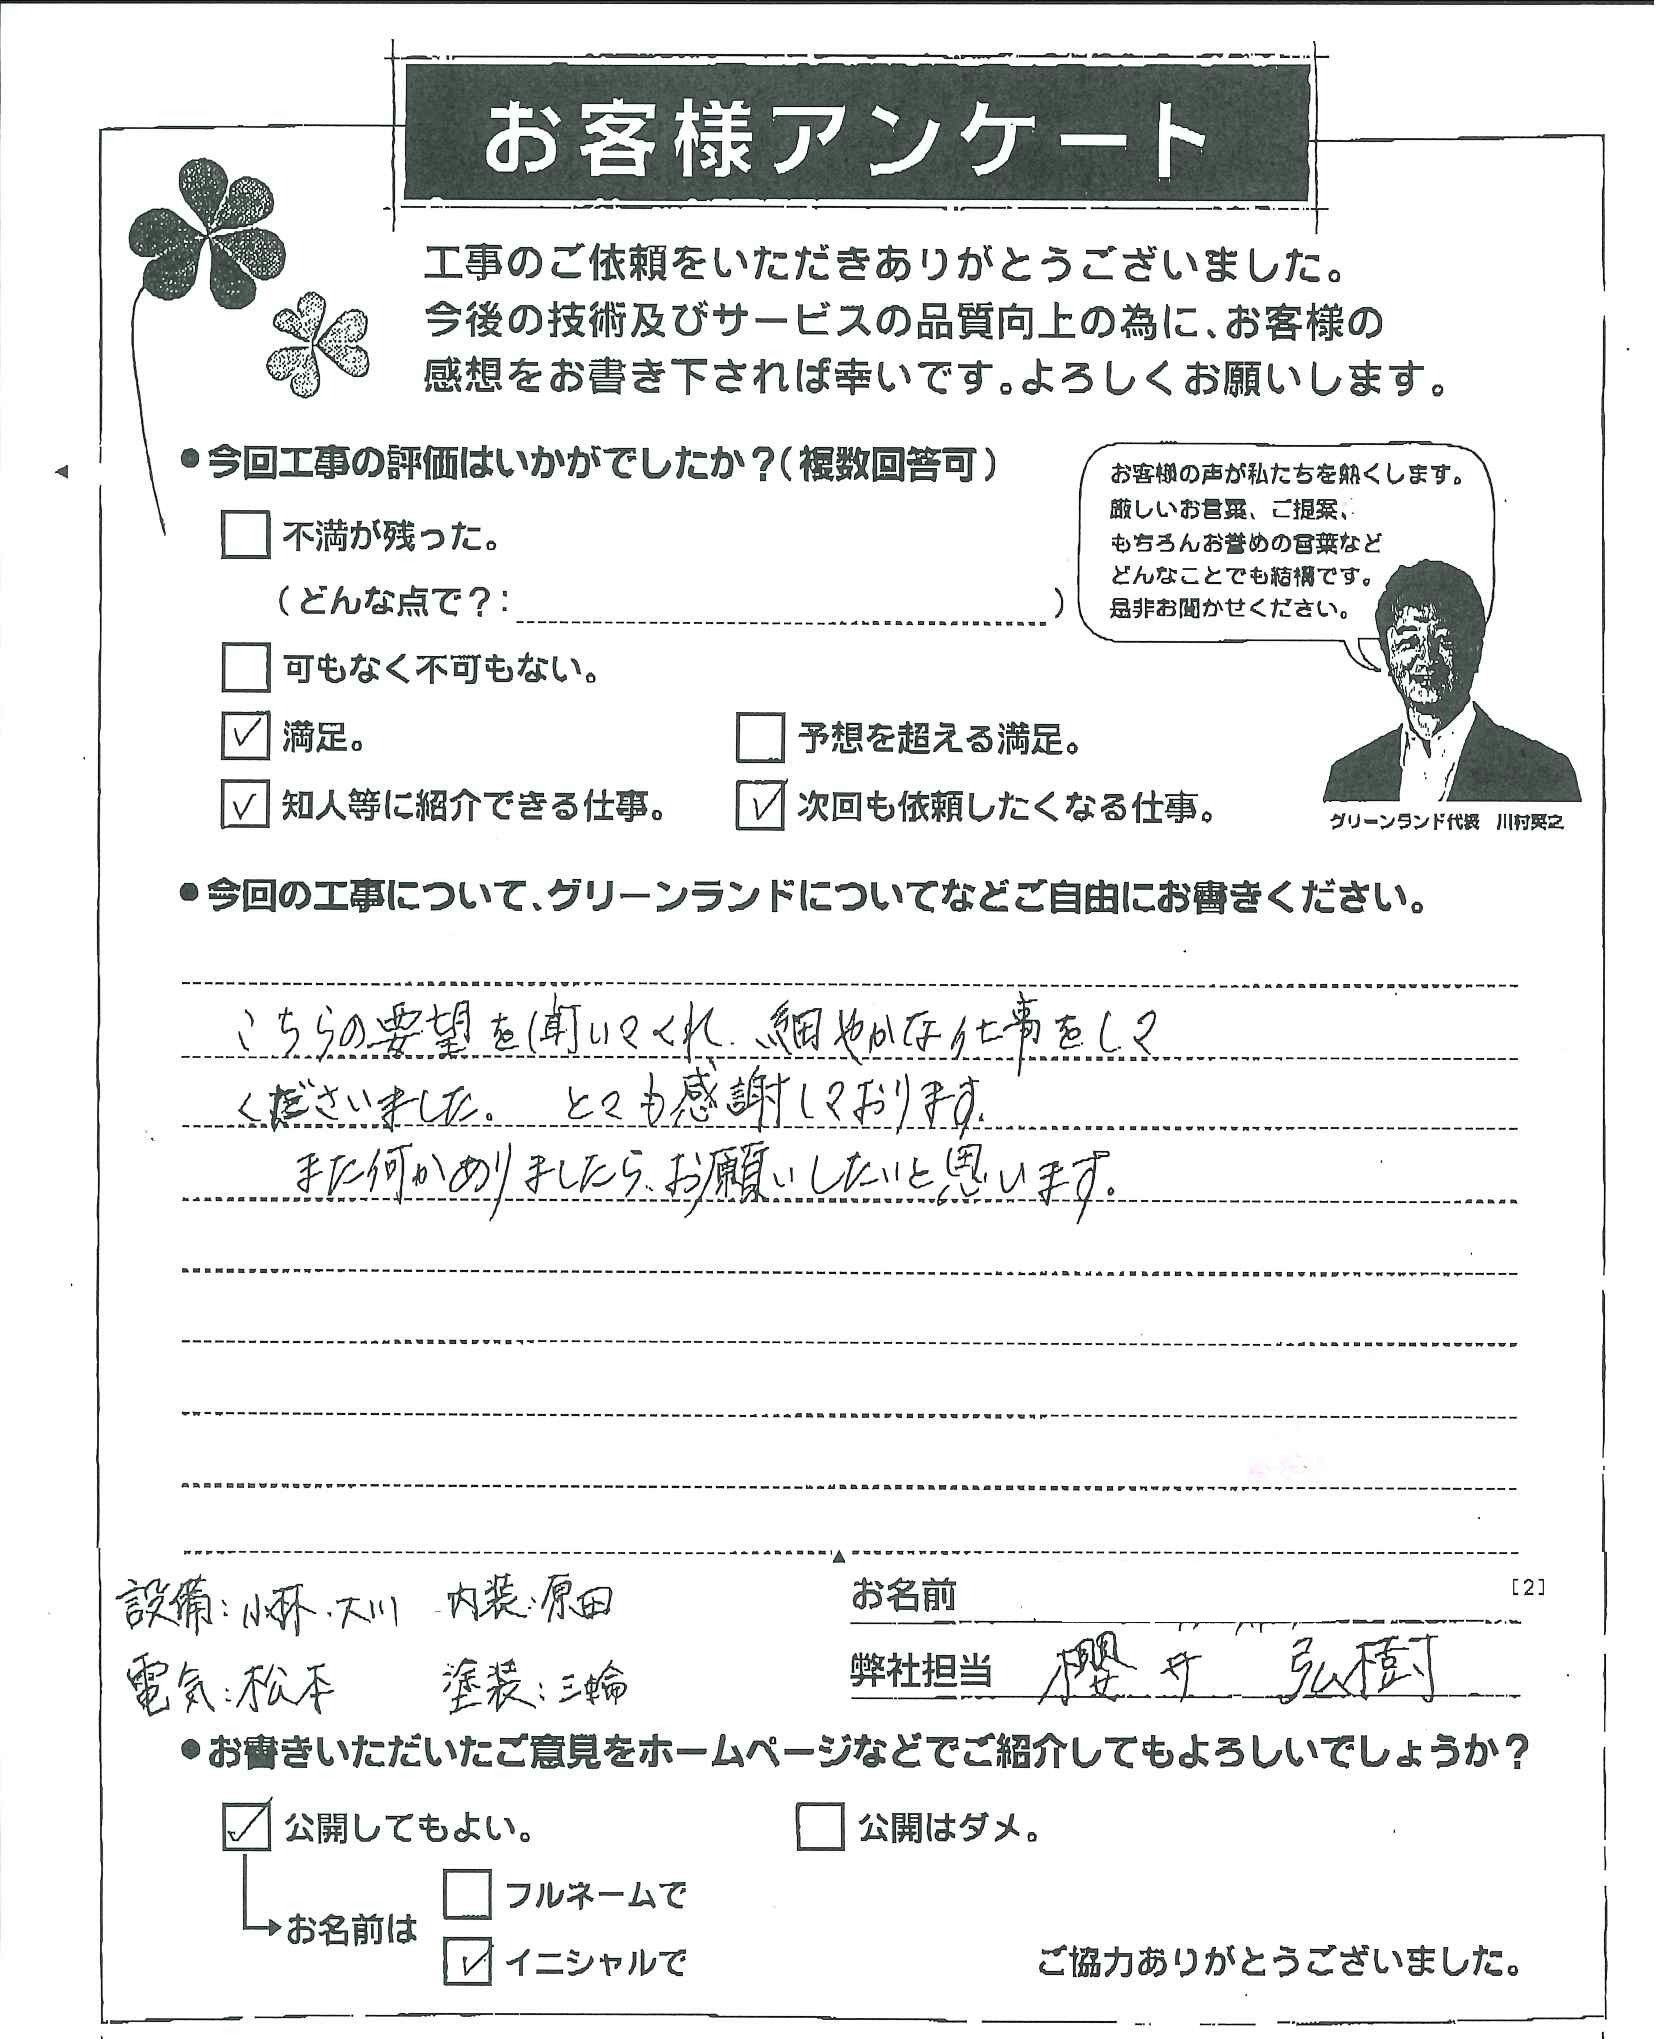 お客様アンケート
工事のご依頼をいただきありがとうございました。
今後の技術及びサービスの品質向上の為に、お客様の
感想をお書き下されば幸いです。よろしくお願いします。
●今回工事の評価はいかがでしたか？(複数回答可)
お客様の声が私たちを熱くします。
厳しいお言葉、ご提案、
もちろんお誉めの言葉など
どんなことでも結構です。
是非お聞かせください。
不満が残った。
(どんな点で？: )
可もなく不可もない。
✓ 満足。
予想を超える満足。
✓ 知人等に紹介できる仕事。
✓ 次回も依頼したくなる仕事。
グリーンランド代表 川村
●今回の工事について、グリーンランドについてなどご自由にお書きください。
こちらの要望を聞いてくれ、細やかな仕事をして
くださいました。 とても感謝しております。
また何かありましたら、お願いしたいと思います。
設備:小林・大川 内装:原田
電気:松本 塗装:三輪
お名前
[2]
弊社担当 櫻井 弘樹
●お書きいただいたご意見をホームページなどでご紹介してもよろしいでしょうか？
✓ 公開してもよい。
公開はダメ。
お名前は
フルネームで
✓ イニシャルで
ご協力ありがとうございました。